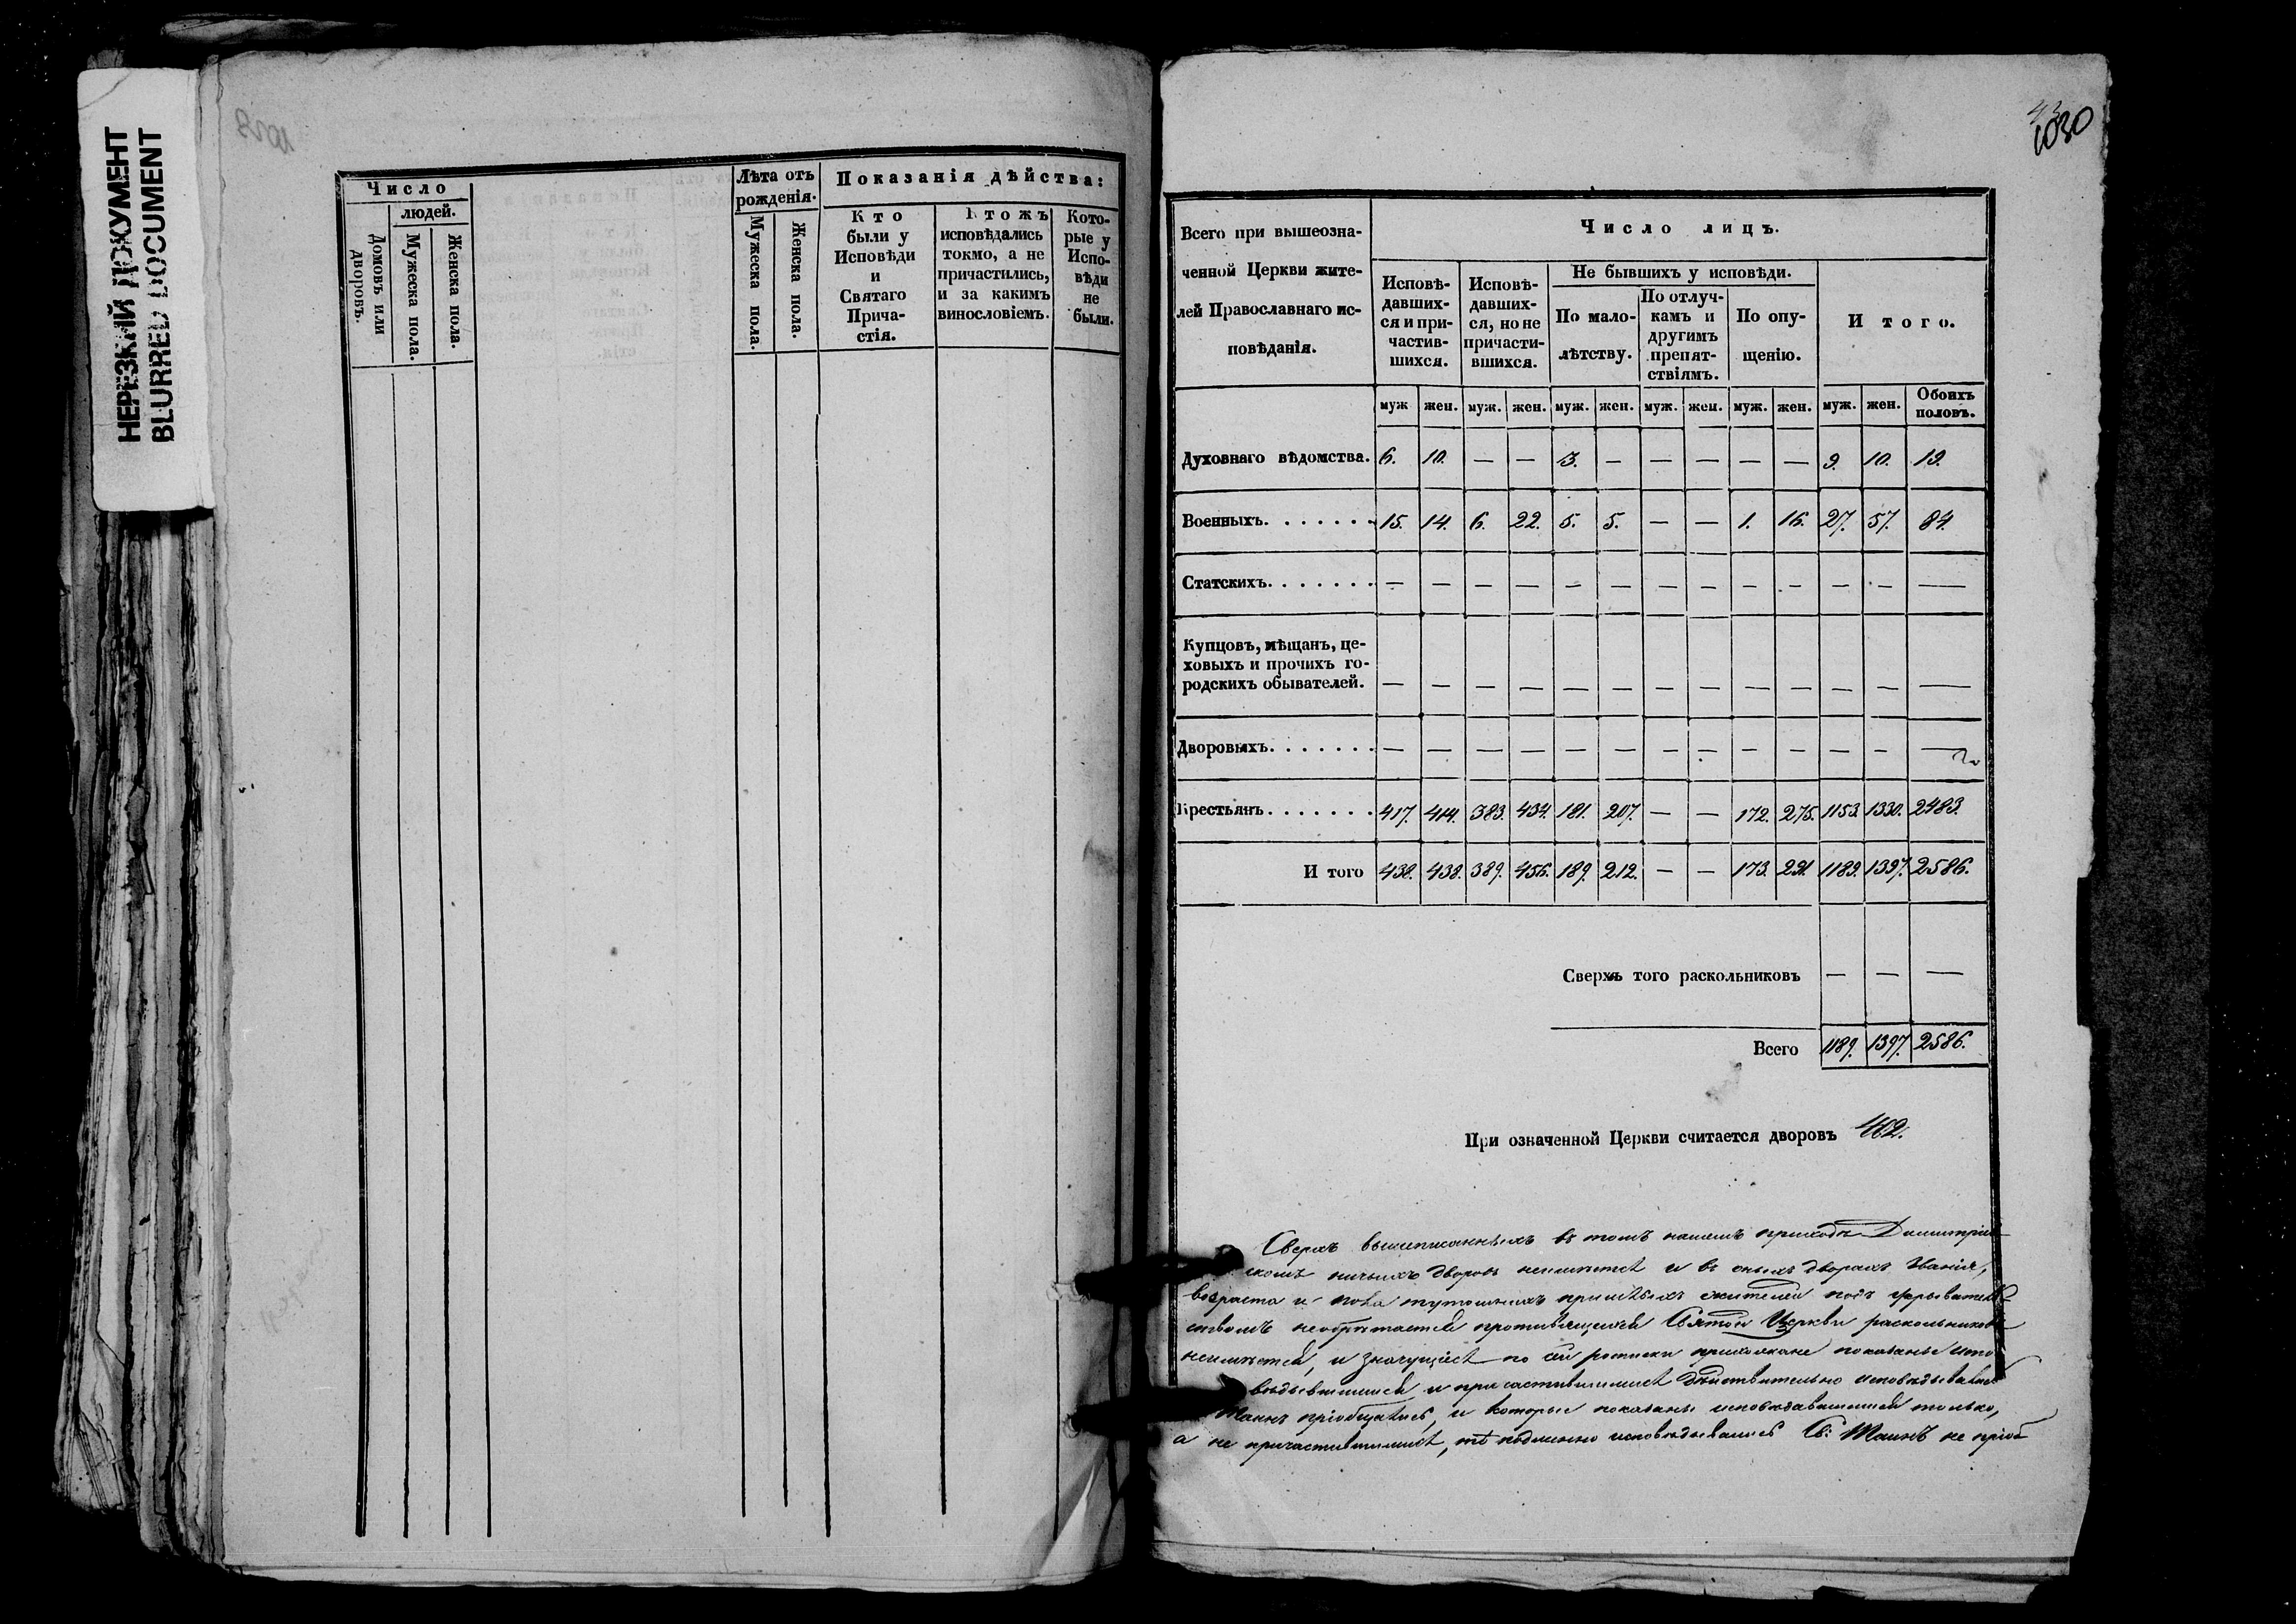 НЕРЕЗКИЙ ДОКУМЕНТ
BLURRED DOCUMENT
Число
людей.
Домовъ или дворовъ.
Мужеска пола.
Женска пола.
Лѣта отъ
рожденія.
Мужеска пола.
Женска пола.
Показанія дѣйства:
Кто
были у
Исповѣди
и
Святаго
Прича-
стія.
Ктожъ
исповѣдались
токмо, а не
причастились,
и за какимъ
винословіемъ.
Кото-
рые у
Испо-
вѣди
не
были.
1030
Всего при вышеозна-
ченной Церкви жите-
лей Православнаго ис-
повѣданія.
Число лицъ.
Исповѣ-
давших-
ся и при-
частив-
шихся.
Исповѣ-
давших-
ся, но не
причасти-
вшихся.
Не бывшихъ у исповѣди.
По мало-
лѣтству.
По отлуч-
камъ и
другимъ
препят-
ствіямъ.
По опу-
щенію.
Итого.
муж жен. муж. жен. муж. жен. муж. жен. муж. жен. муж. жен. Обоихъ половъ.
Духовнаго вѣдомства. 6. 10. — — 3. — — — — — 9. 10. 19.
Военныхъ. . . . . . . 15. 14. 6. 22. 5. 5. — — 1. 16. 27. 57. 84.
Статскихъ. . . . . . . — — — — — — — — — — — — —
Купцовъ, мѣщанъ, це-
ховыхъ и прочихъ го-
родскихъ обывателей. — — — — — — — — — — — — —
Дворовыхъ. . . . . . . — — — — — — — — — — — — —
Крестьянъ. . . . . . . 417. 414. 383. 434. 181. 207. — — 172. 275. 1153. 1330. 2483.
И того 438. 438. 389. 456. 189. 212. — — 173. 291. 1189. 1397. 2586.
Сверхъ того раскольниковъ — — —
Всего 1189. 1397. 2586.
При означенной Церкви считается дворовъ 462.
Сверхъ вышеписанныхъ въ томъ нашемъ приходѣ Димитріев-
скомъ ничьихъ дворовъ неимѣется и въ оныхъ дворахъ званія,
возраста и пола тутошнихъ жителей подъ
необрѣтается противящихся Святой Церкви раскольниковъ
неимѣется, и значущіеся по сей росписи прихожане показаны испо-
вѣдывшимися и причастившимися дѣйствительно исповѣдывались
Таинъ пріобщались, и которые показаны исповѣдавшимися только,
а не причастившимися, тѣ подлинно исповѣдывались Св: Таинъ не пріоб